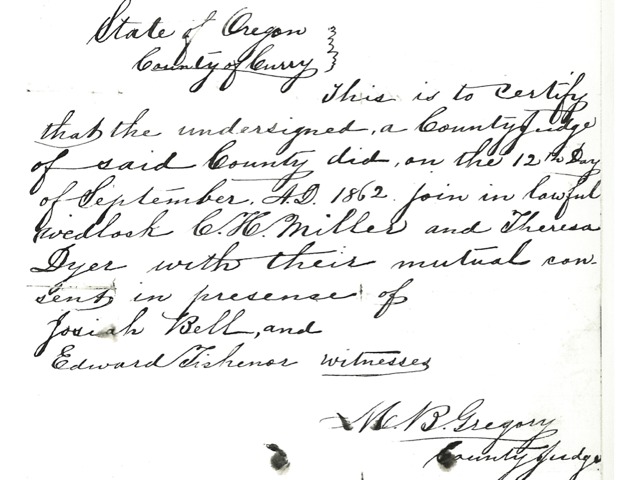 State of Oregon
County of Curry
This is to certify
that the undersigned, a County Judge
of said County did, on the 12th Day
of September, A.D. 1862 join in lawful
wedlosk C. H. Miller and Theresa
Dyer with their mutual con-
sent in presense of
Josiah Bell, and
Edward Tishenor witnesses
M. B. Gregory
County Judge